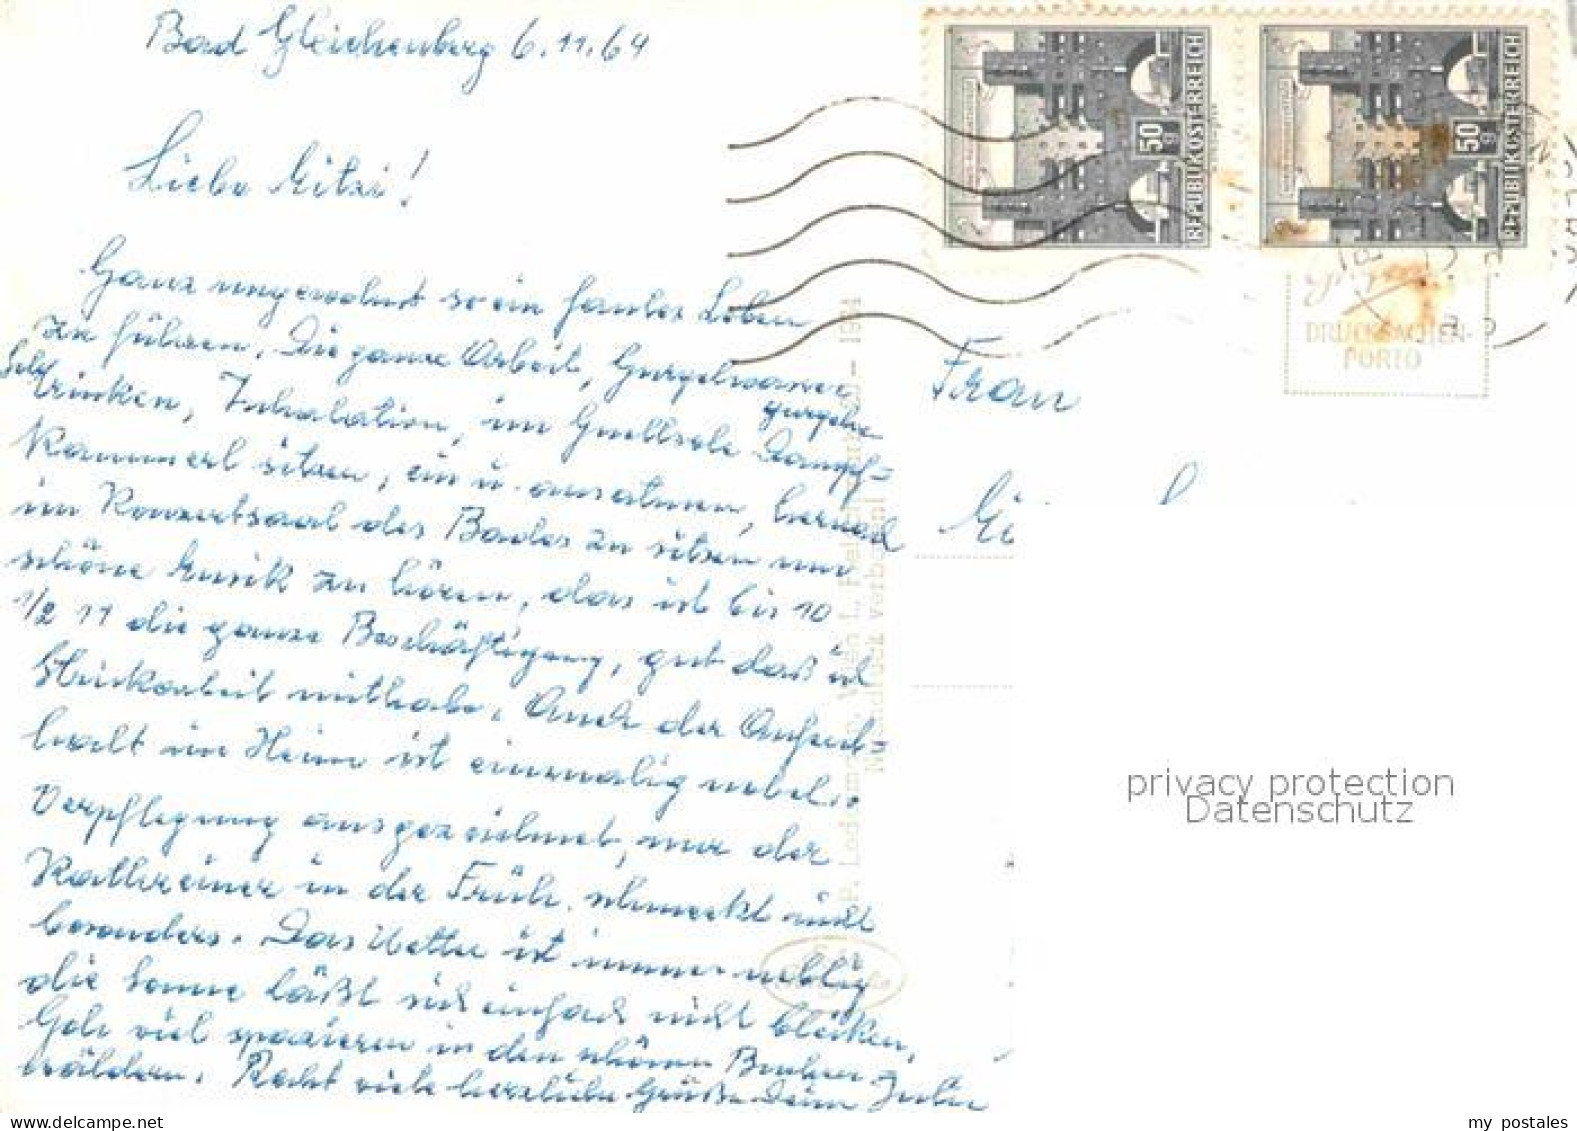 Bad Gleichenberg 6.11.64
Liebe Mitzi!
Ganz ungewohnt so ein faules Leben
zu führen. Die ganze Arbeit, Gurgelwasser
gurgeln
trinken, Inhalation, im Quellsole Dampf=
Kammerl sitzen, ein u. ausatmen, hernach
im Konzertsaal des Bades zu sitzen um
schöne Musik zu hören, das ist bis 10
1/2 11 die ganze Beschäftigung, gut daß ich
Strickarbeit mithabe. Auch der Aufent=
halt im Heim ist einmalig nobel.
Verpflegung ausgezeichnet, nur der
Kathreiner in der Früh schmeckt nicht
besonders. Das Wetter ist immer neblig
die Sonne läßt sich einfach nicht blicken,
Geh viel spazieren in den schönen Buchen=
wäldern. Recht viele herzliche Grüße Deine Julie
Frau
REPUBLIK ÖSTERREICH
50
g
REPUBLIK ÖSTERREICH
50
g
DRUCKSACHEN-
PORTO
P. Ledermann, Wien I,
Nachdruck verboten!
privacy protection
Datenschutz
www.delcampe.net
my_postales